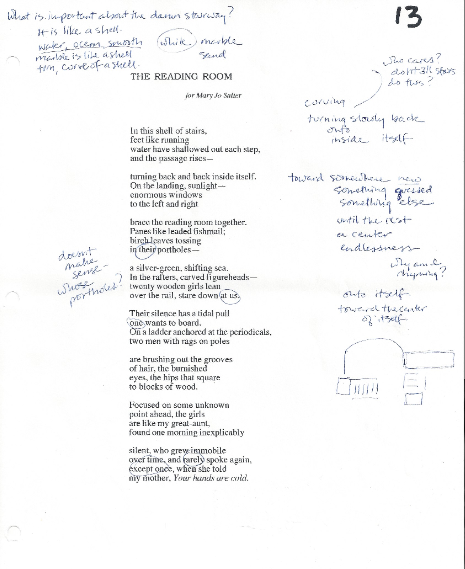 What is important about the damn stairway?
It is like a shell.
water, ocean, smooth
marble is like a shell
turn, curve of a shell.
white, marble
sand
13
who cares?
don't all stairs
do this?
THE READING ROOM
for Mary Jo Salter
curving
turning slowly back
onto
inside itself
In this shell of stairs,
feet like running
water have shallowed out each step,
and the passage rises—
turning back and back inside itself.
On the landing, sunlight—
enormous windows
to the left and right
toward somewhere new
something guessed
something else
until the rest
or center
endlessness
brace the reading room together.
Panes like leaded fishmail;
birch leaves tossing
in their portholes—
doesn't
make
sense
whose
portholes?
why am I
rhyming?
a silver-green, shifting sea.
In the rafters, carved figureheads—
twenty wooden girls lean
over the rail, stare down at us.
onto itself
toward the center
of itself
Their silence has a tidal pull
one wants to board.
On a ladder anchored at the periodicals,
two men with rags on poles
are brushing out the grooves
of hair, the burnished
eyes, the hips that square
to blocks of wood.
Focused on some unknown
point ahead, the girls
are like my great-aunt,
found one morning inexplicably
silent, who grew immobile
over time, and rarely spoke again,
except once, when she told
my mother, Your hands are cold.